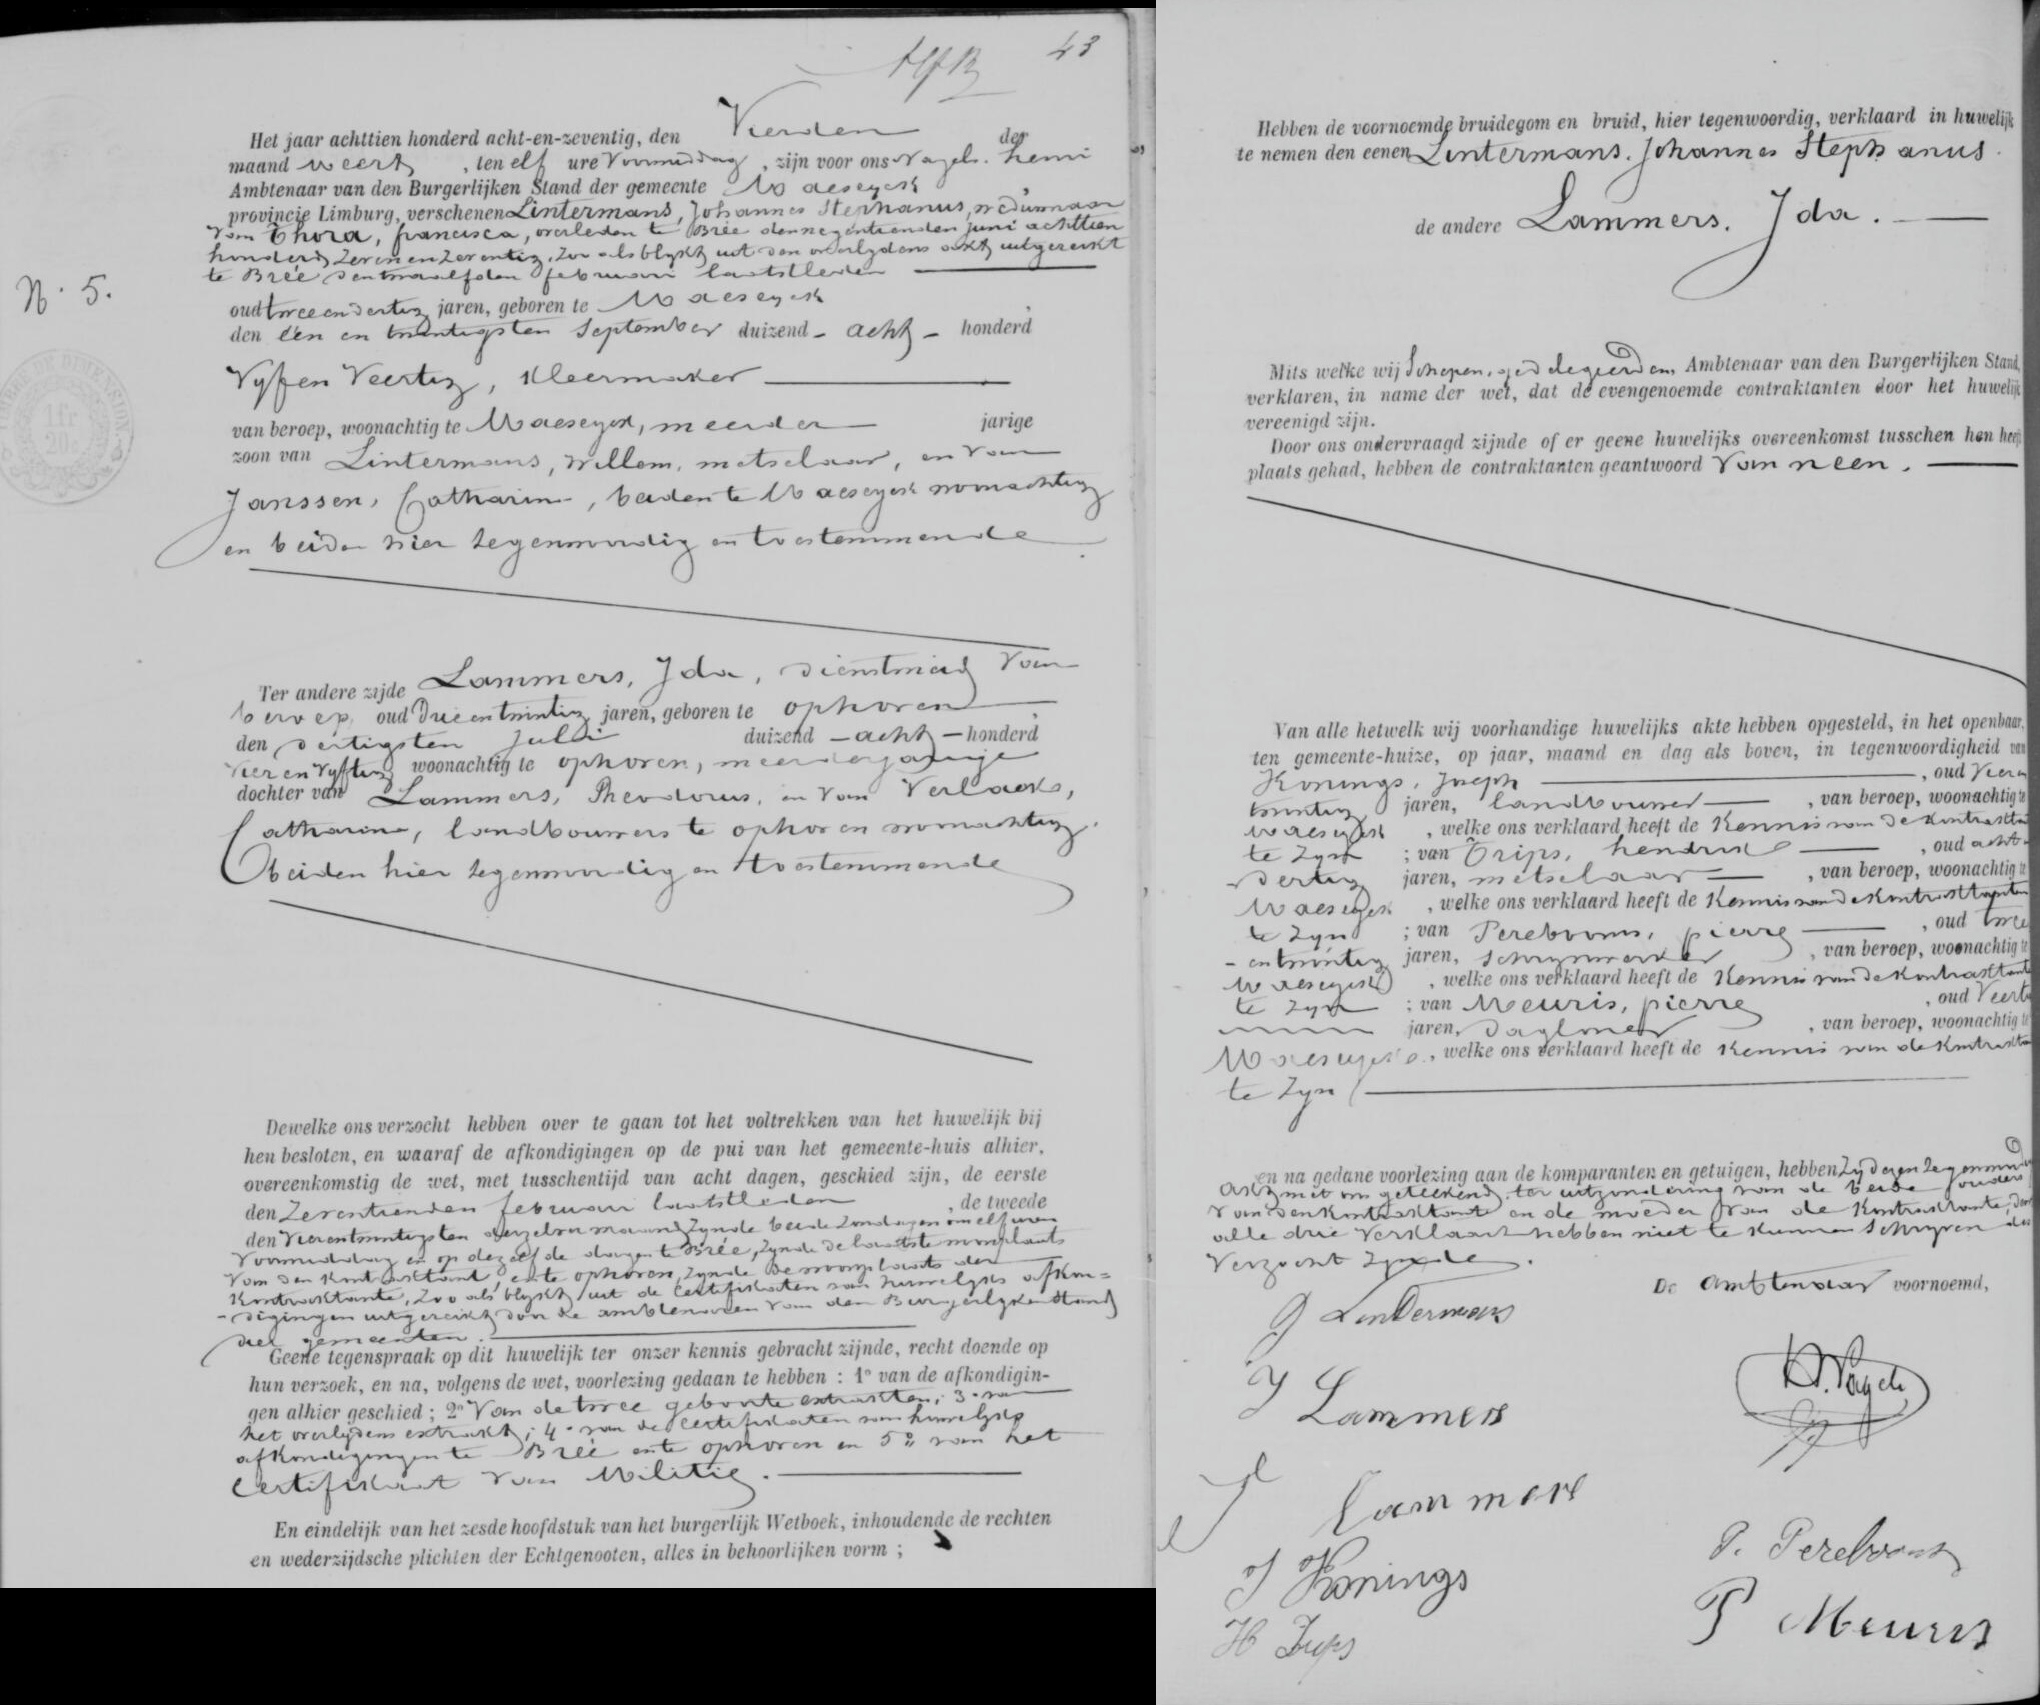 43
N. 5.
TIMBRE DE DIMENSION
1fr
20
Het jaar achttien honderd acht-en-zeventig, den Vierden der
maand meert, ten elf ure Voormiddag, zijn voor ons Nagels. henri
Ambtenaar van den Burgerlijken Stand der gemeente Maeseyck
provincie Limburg, verschenen Lintermans, Johannes Stephanus, weduwnaar
van Thora, francisca, overleden te Brée den negentienden juni achttien
honderd zevenenzeventig, zoo als blykt uit den overlydens akt uitgereikt
te Brée den twaalfden februari laatstleden
oud tweeendertig jaren, geboren te Maeseyck
den één en twintigsten september duizend - acht - honderd
Vyfen Veertig, Kleermaker
van beroep, woonachtig te Maeseyck, meerder jarige
zoon van Lintermans, Willem, metselaar, en van
Janssen, Catharina, beiden te Maeseyck woonachtig
en beiden hier tegenwoordig en toestemmende
Ter andere zijde Lammers, Ida, dienstmeid van
beroep, oud Drieentwintig jaren, geboren te ophoven
den dertigsten juli duizend - acht - honderd
vier en vyftig woonachtig te ophoven, meerderjarige
dochter van Lammers, Theodorus, en van Verlaeks,
Catharina, landbouwers te ophoven woonachtig.
beiden hier tegenwoordig en toestemmende
Dewelke ons verzocht hebben over te gaan tot het voltrekken van het huwelijk bij
hen besloten, en waaraf de afkondigingen op de pui van het gemeente-huis alhier,
overeenkomstig de wet, met tusschentijd van acht dagen, geschied zijn, de eerste
den Zeventienden februari laatstleden, de tweede
den Vierentwintigsten derzelver maand zynde beide zondagen om elf uren
Voormiddag en op dezelfde dagen te Brée, zynde de laatste woonplaats
van den kontraktant, en te ophoven, zynde de woonplaats der
Kontraktante, zoo als blykt uit de certifikaten van huwelyks afkon=
-digingen uitgereikt door de ambtenaren van den Burgerlyken Stand
dier gemeenten.
Geene tegenspraak op dit huwelijk ter onzer kennis gebracht zijnde, recht doende op
hun verzoek, en na, volgens de wet, voorlezing gedaan te hebben : 1° van de afkondigin-
gen alhier geschied ; 2° Van de twee geboorte extrakten; 3° van
het overlydens extrakt; 4° van de certifikaten van huwelyks
afkondigingen te Brée en te ophoven en 5° van het
Certifikaat van Militie.
En eindelijk van het zesde hoofdstuk van het burgerlijk Wetboek, inhoudende de rechten
en wederzijdsche plichten der Echtgenooten, alles in behoorlijken vorm ;
Hebben de voornoemde bruidegom en bruid, hier tegenwoordig, verklaard in huwelijk
te nemen den eenen Lintermans. Johannes Stephanus.
de andere Lammers. Ida.
Mits welke wij Schepen, gedelegeerden Ambtenaar van den Burgerlijken Stand,
verklaren, in name der wet, dat de evengenoemde contraktanten door het huwelijk
vereenigd zijn.
Door ons ondervraagd zijnde of er geene huwelijks overeenkomst tusschen hen heeft
plaats gehad, hebben de contraktanten geantwoord Van neen.
Van alle hetwelk wij voorhandige huwelijks akte hebben opgesteld, in het openbaar,
ten gemeente-huize, op jaar, maand en dag als boven, in tegenwoordigheid van
Konings, Joseph, oud Vieren
twintig jaren, landbouwer, van beroep, woonachtig te
Maeseyck, welke ons verklaard heeft de Kennis van de kontraktan
te zyn ; van Trips, hendrik, oud acht-
dertig jaren, metselaar, van beroep, woonachtig te
Maeseyck, welke ons verklaard heeft de Kennis van de kontraktanten
te zyn ; van Perebooms, pierre, oud twee
-entwintig jaren, schrynwerker, van beroep, woonachtig te
Maeseyck, welke ons verklaard heeft de Kennis van de kontraktante
te zyn ; van Meuris, pierre, oud Veerti
jaren, dagloner, van beroep, woonachtig te
Maeseyck, welke ons verklaard heeft de Kennis van de kontraktan
te zyn
en na gedane voorlezing aan de komparanten en getuigen, hebben zy dezen tegenwoordig
akt met ons geteekend, ter uitzondering van de beide ouders
van den kontraktant en de moeder van de kontraktante, den
alle drie verklaart hebben niet te kunnen schryven des
Verzocht zynde.
De Ambtenaar voornoemd,
J Lindermans
I Lammers
H. Nagels
T Lammers
J Konings
P. Perebooms
H Trips
P Meuris